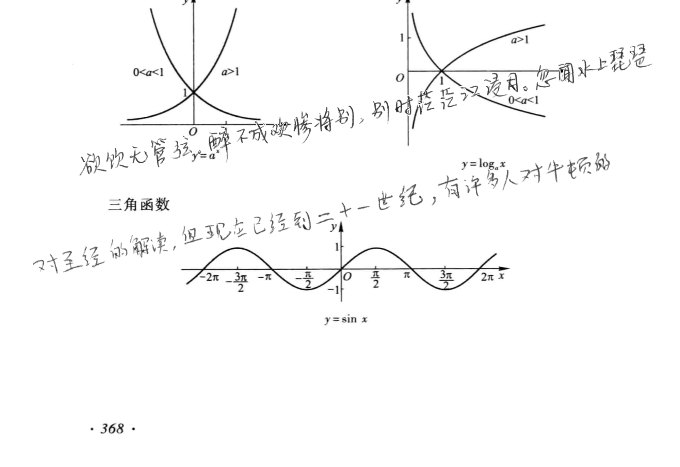 y
y
1
a>1
0<a<1
a>1
1
O
1
0<a<1
O
x
欲饮无管弦,醉不成欢惨将别,别时茫茫江浸月。忽闻水上琵琶
y=aˣ
y=logₐx
三角函数
对圣经的解读,但现在已经到二十一世纪,有许多人对牛顿的
y
1
-2π -3π/2 -π -π/2 O π/2 π 3π/2 2π x
-1
y=sin x
·368·